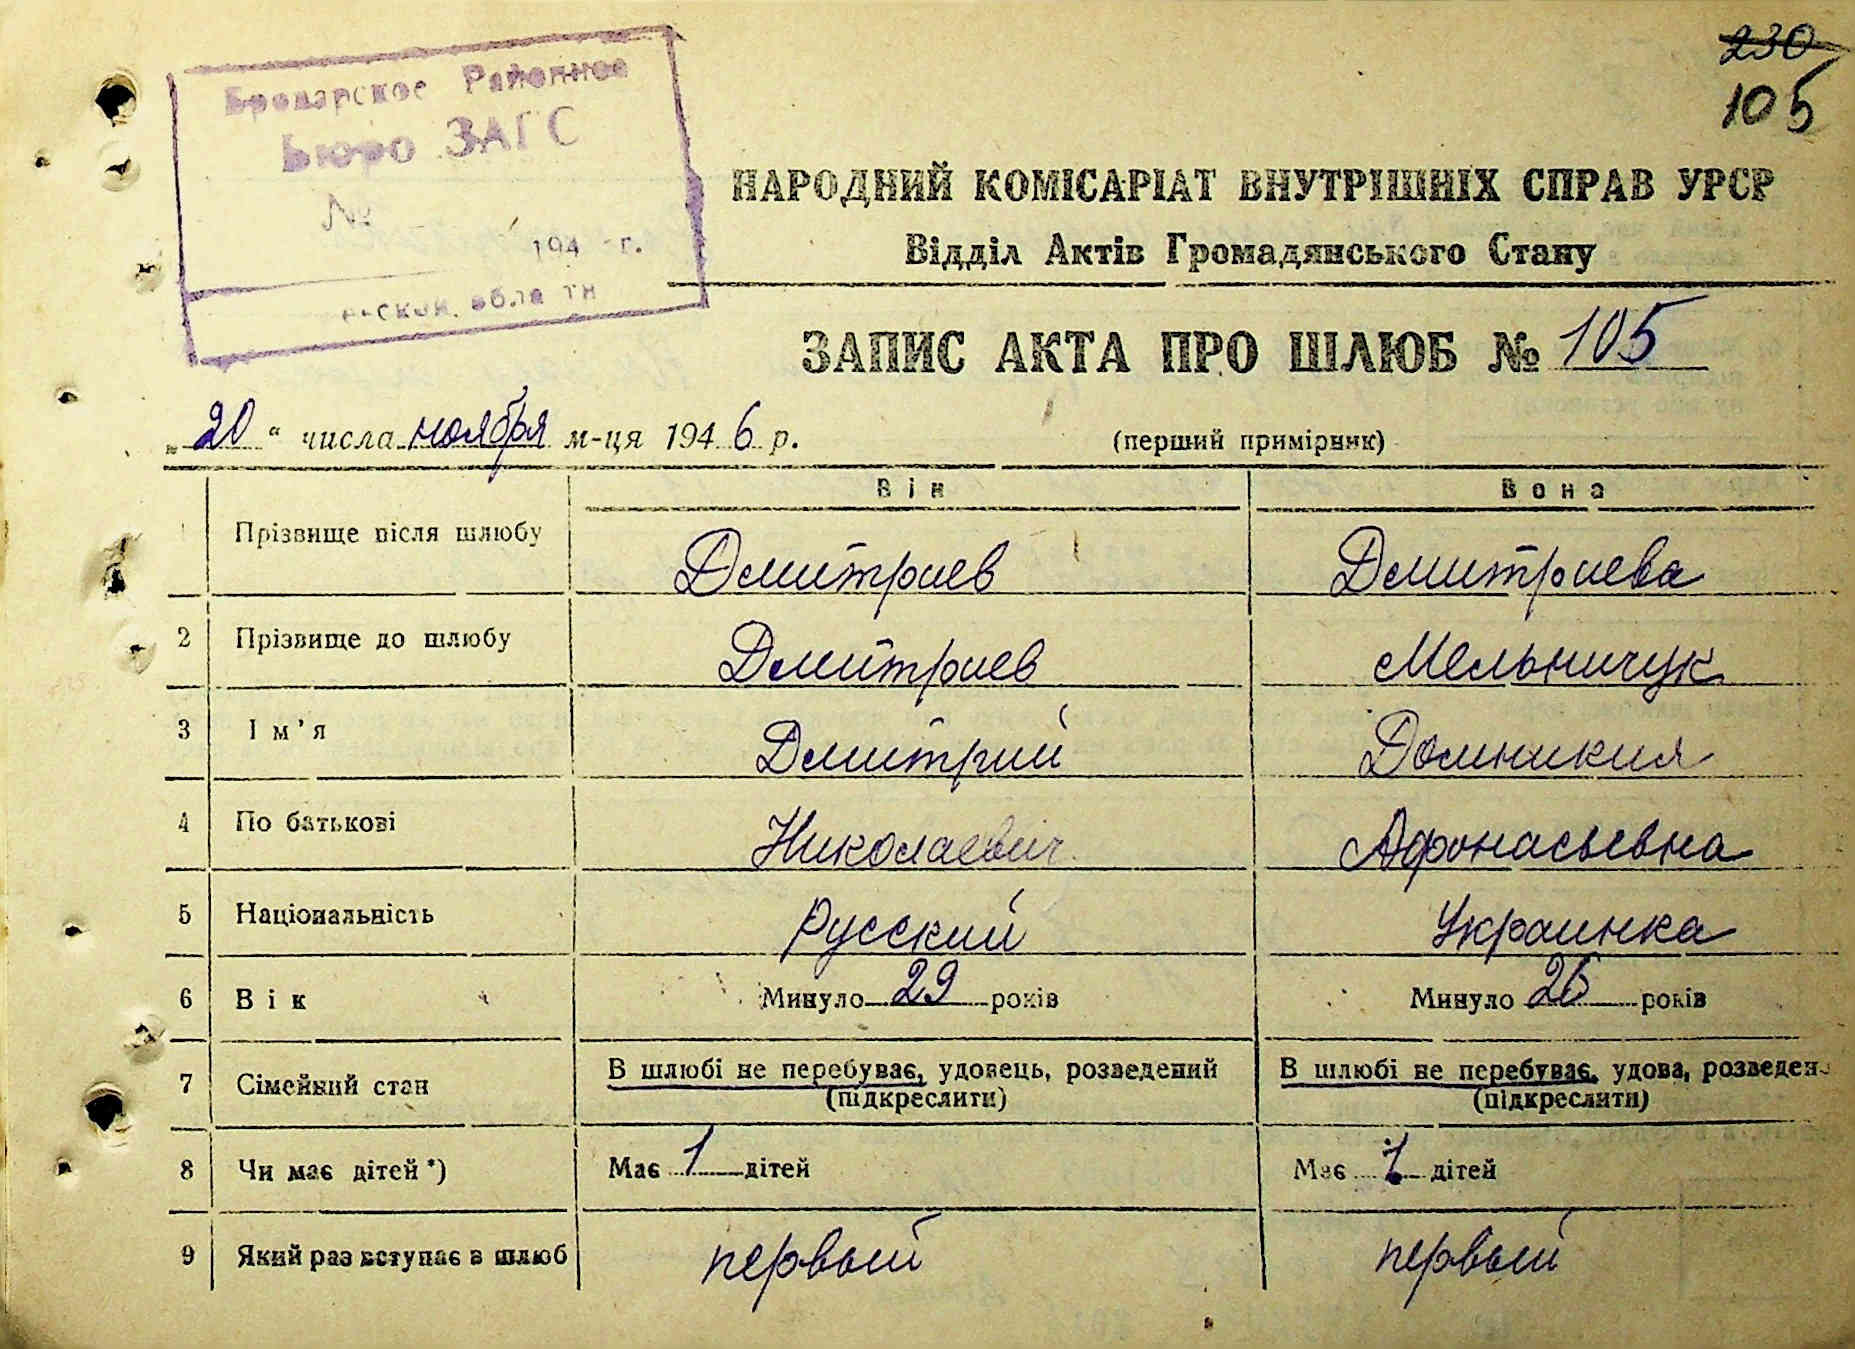 Броварское Районное
Бюро ЗАГС
№
194 г.
области
230
105
НАРОДНИЙ КОМІСАРІАТ ВНУТРІШНІХ СПРАВ УРСР
Відділ Актів Громадянського Стану
ЗАПИС АКТА ПРО ШЛЮБ № 105
„20“ числа ноября м-ця 1946 р. (перший примірник)
Він Вона
1 Прізвище після шлюбу Дмитриев Дмитриева
2 Прізвище до шлюбу Дмитриев Мельничук
3 Ім’я Дмитрий Домникия
4 По батькові Николаевич Афонасьевна
5 Національність Русский Украинка
6 Вік Минуло 29 років Минуло 26 років
7 Сімейний стан В шлюбі не перебуває, удовець, розведений В шлюбі не перебуває, удова, розведена
(підкреслити) (підкреслити)
8 Чи має дітей *) Має 1 дітей Має 1 дітей
9 Який раз вступає в шлюб первый первый